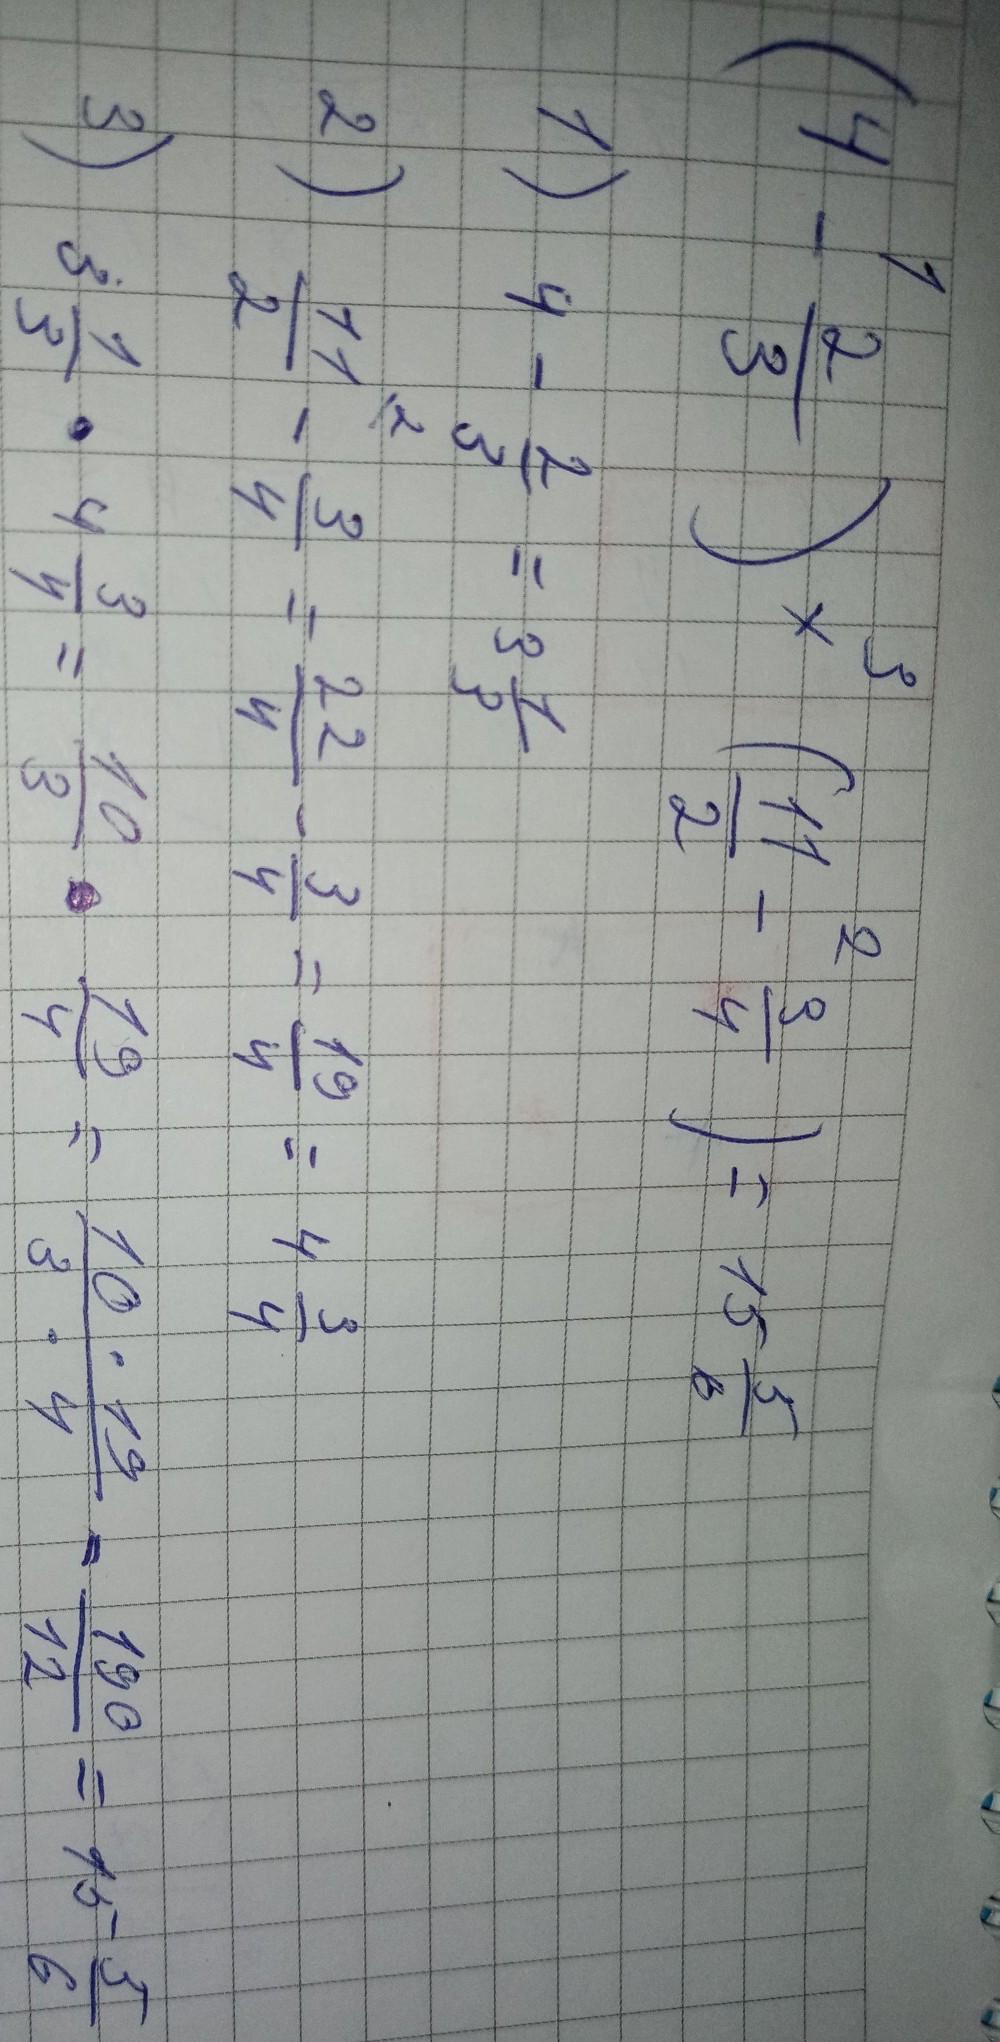 (4 - 2/3) × (11/2 - 3/4) = 15 5/6
1 3 2
1) 4 - 2/3 = 3 1/3
2) 11/2 - 3/4 = 22/4 - 3/4 = 19/4 = 4 3/4
3) 3 1/3 · 4 3/4 = 10/3 · 19/4 = 10·19/3·4 = 190/12 = 15 5/6